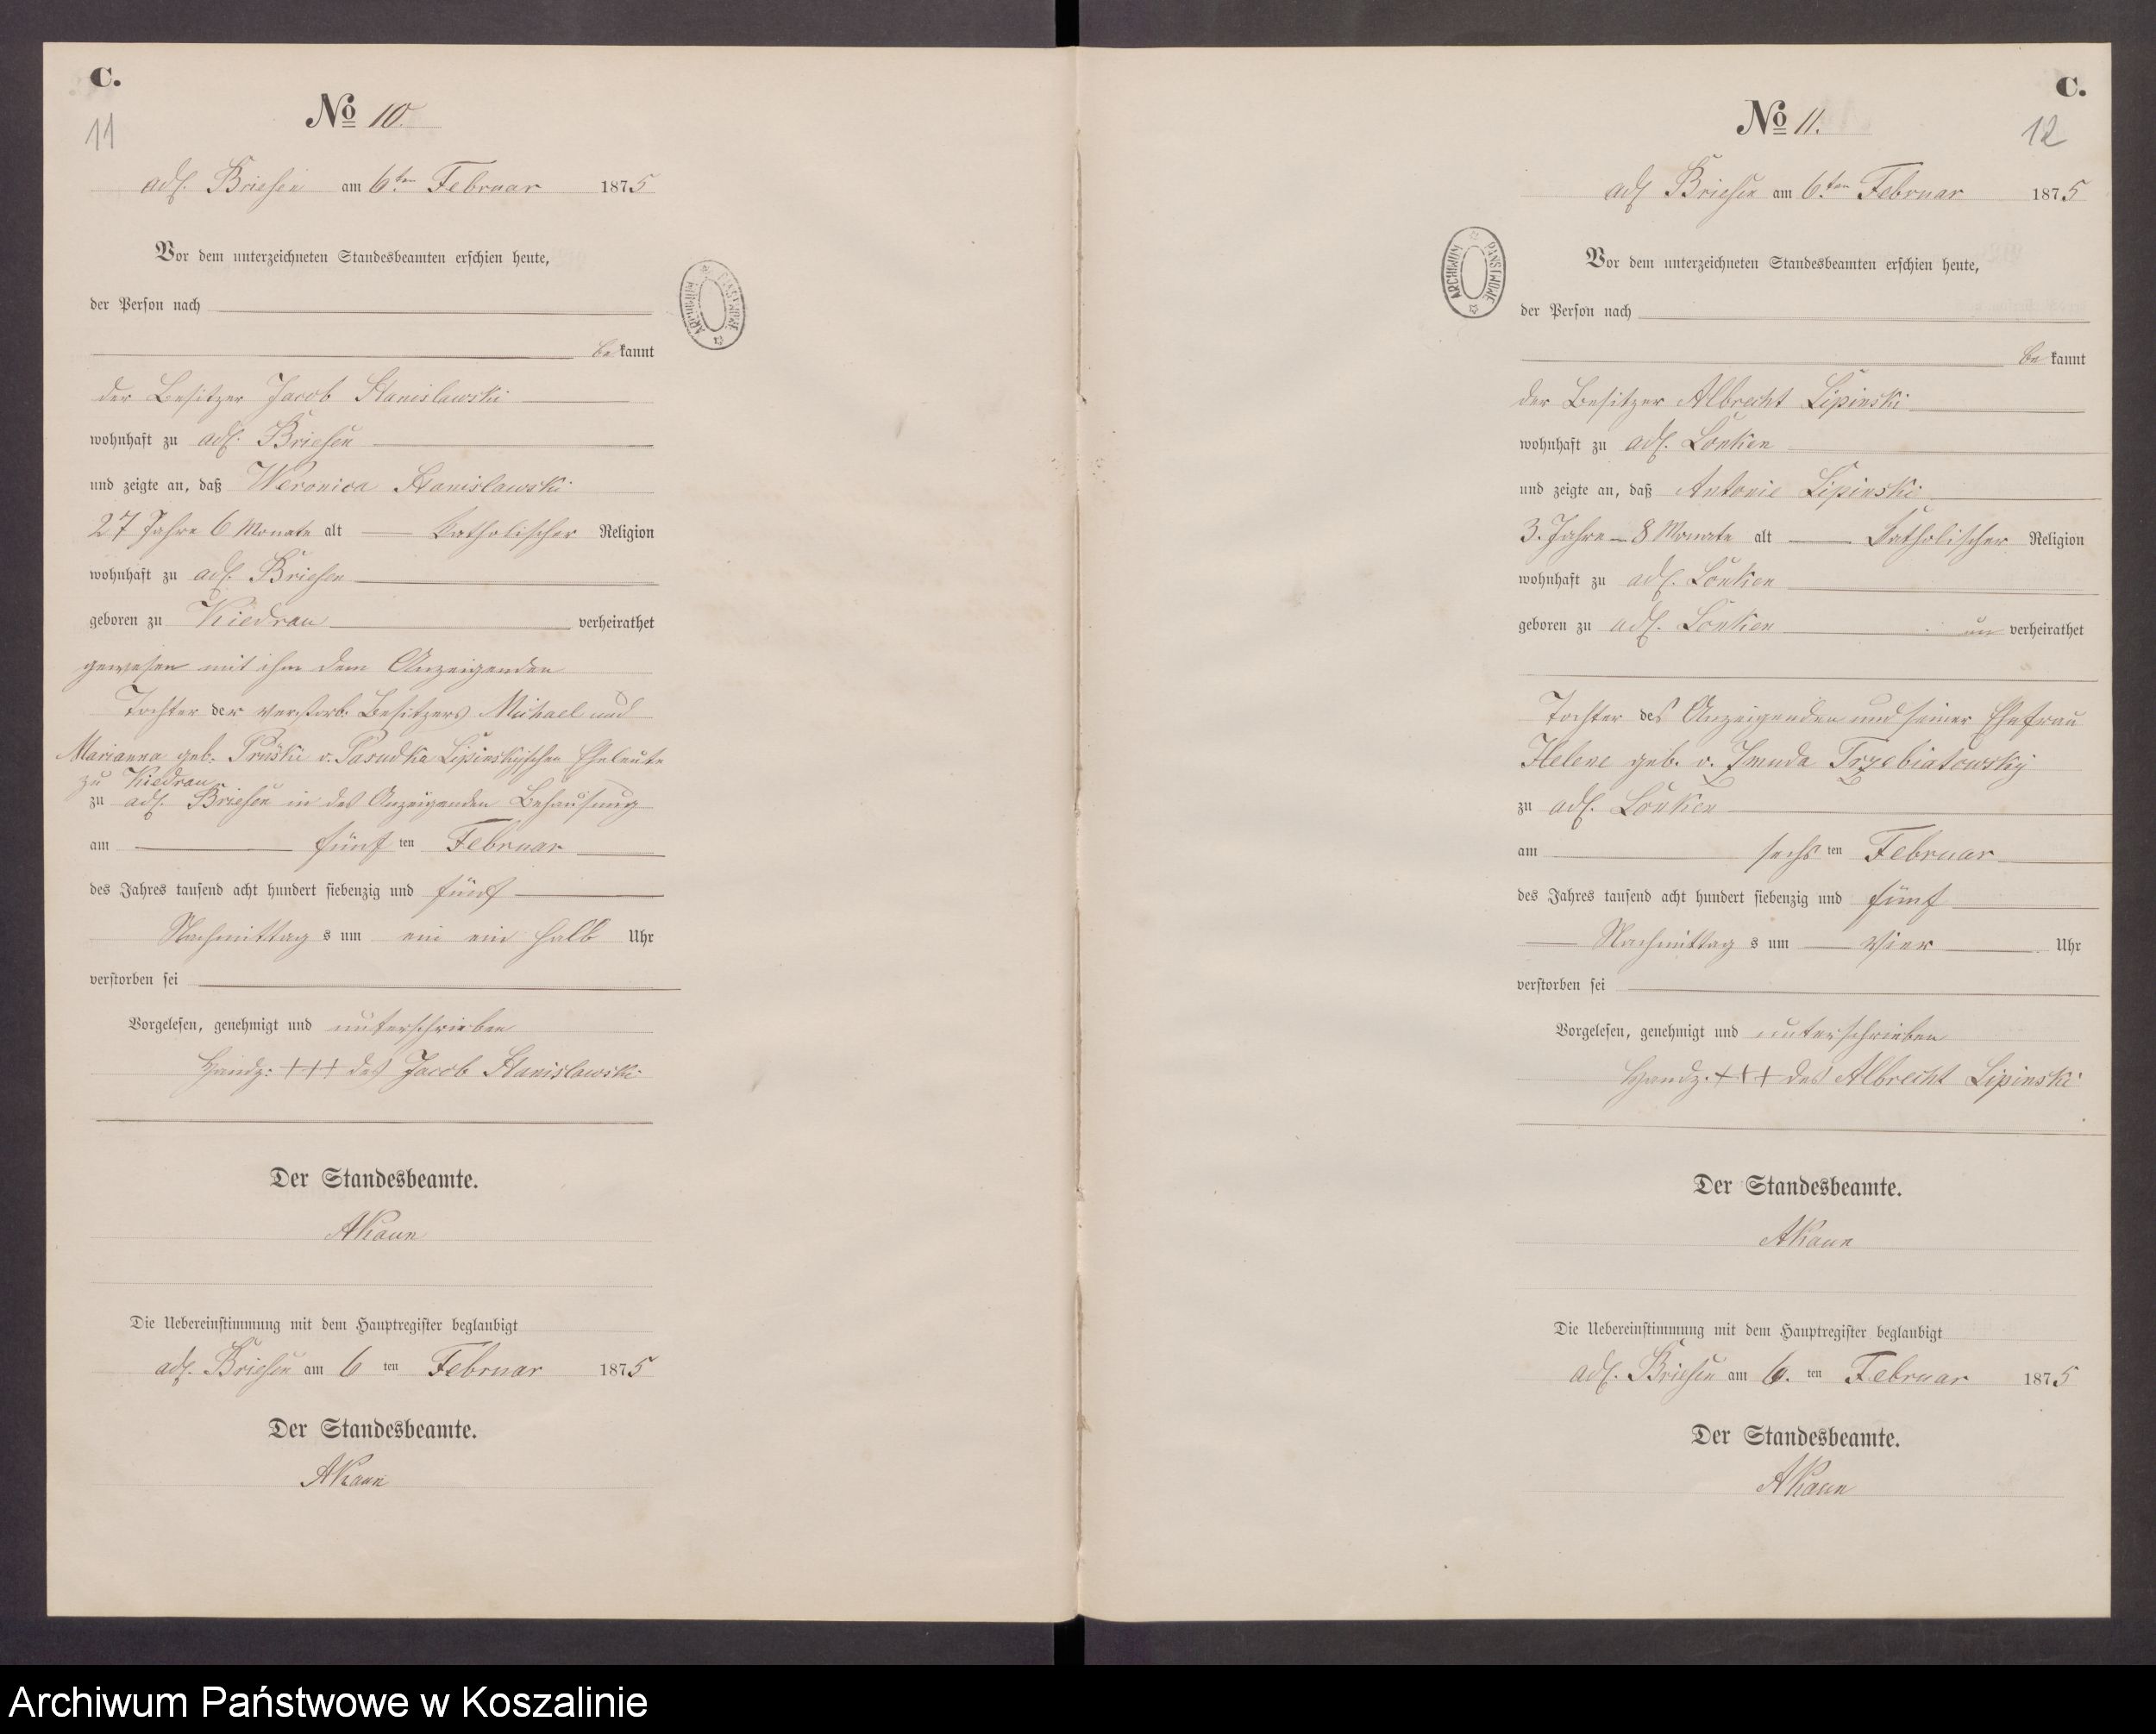 C.
11
No 10.
adl. Briesen am 6ten Februar 1875
Vor dem unterzeichneten Standesbeamten erschien heute,
der Person nach
bekannt
der Besitzer Jacob Stanislawski
wohnhaft zu adl. Briesen
und zeigte an, daß Weronica Stanislawski
27 Jahre 6 Monate alt katholischer Religion
wohnhaft zu adl. Briesen
geboren zu Kiedrau verheirathet
gewesen mit ihm dem Anzeigenden
Tochter der verstorb. Besitzers Michael und
Marianna geb. v. Lipinskyschen Eheleute
zu Kiedrau
zu adl. Briesen in des Anzeigenden Behausung
am fünften Februar
des Jahres tausend acht hundert siebenzig und fünf
Nachmittags um ein ein halb Uhr
verstorben sei
Vorgelesen, genehmigt und unterschrieben
Handz: +++ des Jacob Stanislawski
Der Standesbeamte.
AKaun
Die Uebereinstimmung mit dem Hauptregister beglaubigt
adl. Briesen am 6 ten Februar 1875
Der Standesbeamte.
AKaun
ARCHIWUM PAŃSTWOWE
C.
12
No 11.
adl Briesen am 6ten Februar 1875
Vor dem unterzeichneten Standesbeamten erschien heute,
der Person nach
bekannt
der Besitzer Albrecht Lipinski
wohnhaft zu adl. Lonken
und zeigte an, daß Antonie Lipinski
3. Jahre 8 Monate alt katholischer Religion
wohnhaft zu adl. Lonken
geboren zu adl. Lonken unverheirathet
Tochter des Anzeigenden und seiner Ehefrau
Helene geb. v. Jmuda Trzebiatowsky
zu adl. Lonken
am sechsten Februar
des Jahres tausend acht hundert siebenzig und fünf
Nachmittags um vier Uhr
verstorben sei
Vorgelesen, genehmigt und unterschrieben
Handz. +++ des Albrecht Lipinski
Der Standesbeamte.
AKaun
Die Uebereinstimmung mit dem Hauptregister beglaubigt
adl. Briesen am 6. ten Februar 1875
Der Standesbeamte.
AKaun
ARCHIWUM PAŃSTWOWE
Archiwum Państwowe w Koszalinie